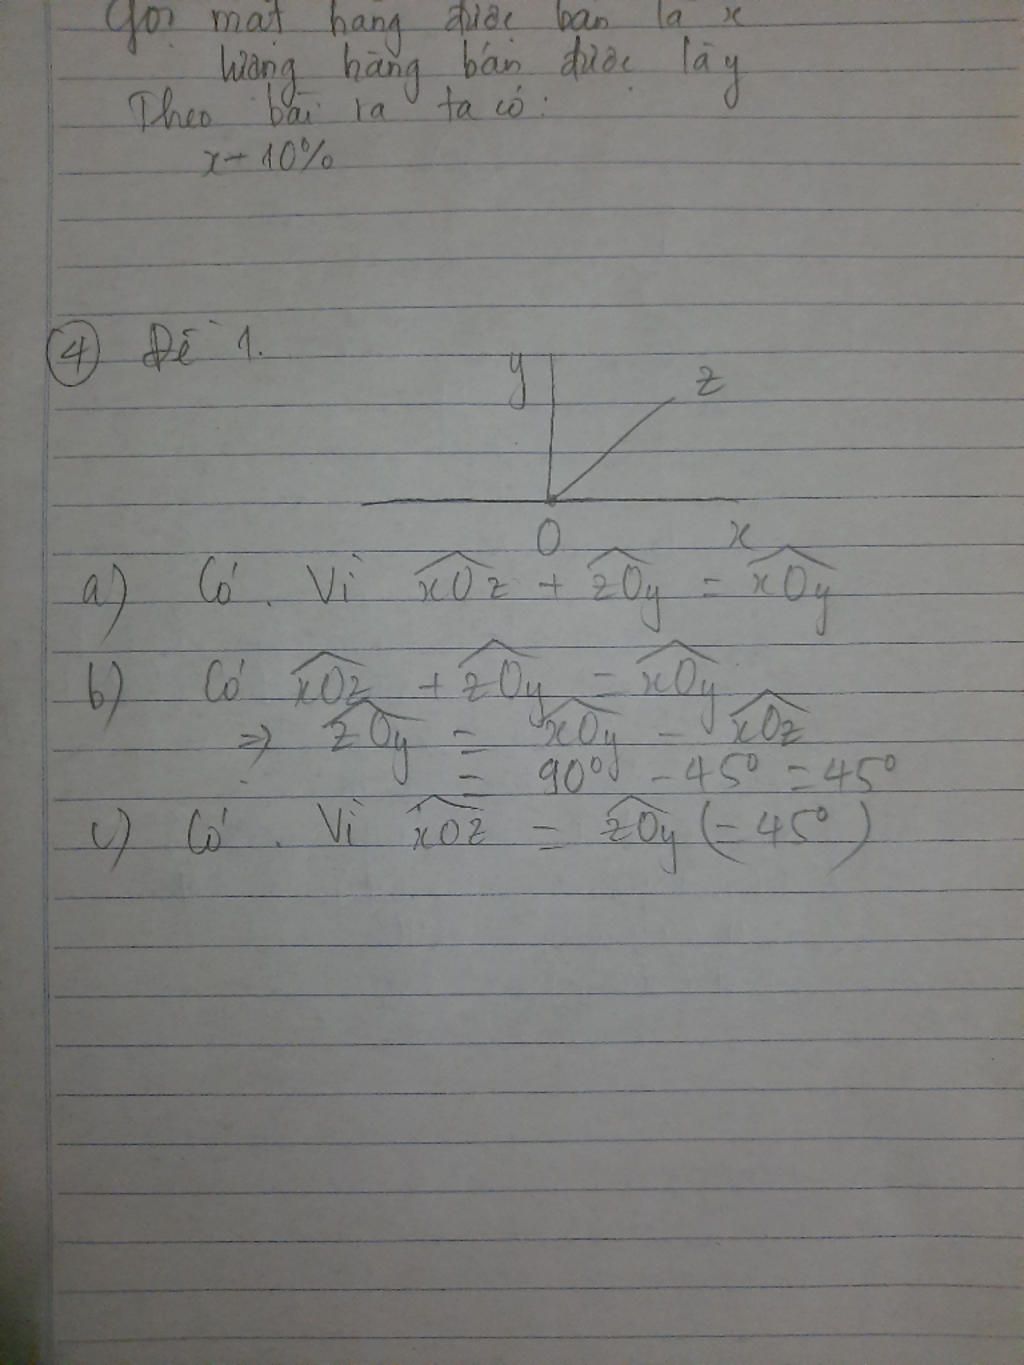 Gọi mặt hàng được bán là x
lượng hàng bán được là y
Theo bài ra ta có:
x - 10%
④ Đề 1.
y
z
O
x
a) Có. Vì xOz + zOy = xOy
b) Có xOz + zOy = xOy
=> zOy = xOy - xOz
= 90° - 45° = 45°
c) Có. Vì xOz = zOy (= 45°)